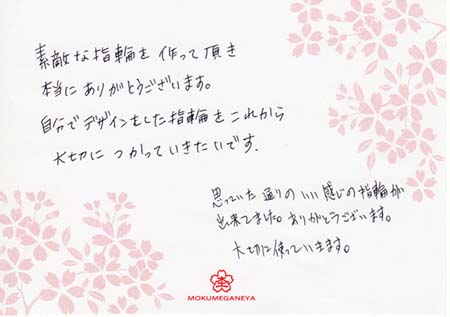 素敵な指輪を作って頂き
本当にありがとうございます。
自分でデザインをした指輪をこれから
大切につかっていきたいです.
思っていた通りのいい感じの指輪が
出来てました。ありがとうございます。
大切に使っていきます。
MOKUMEGANEYA